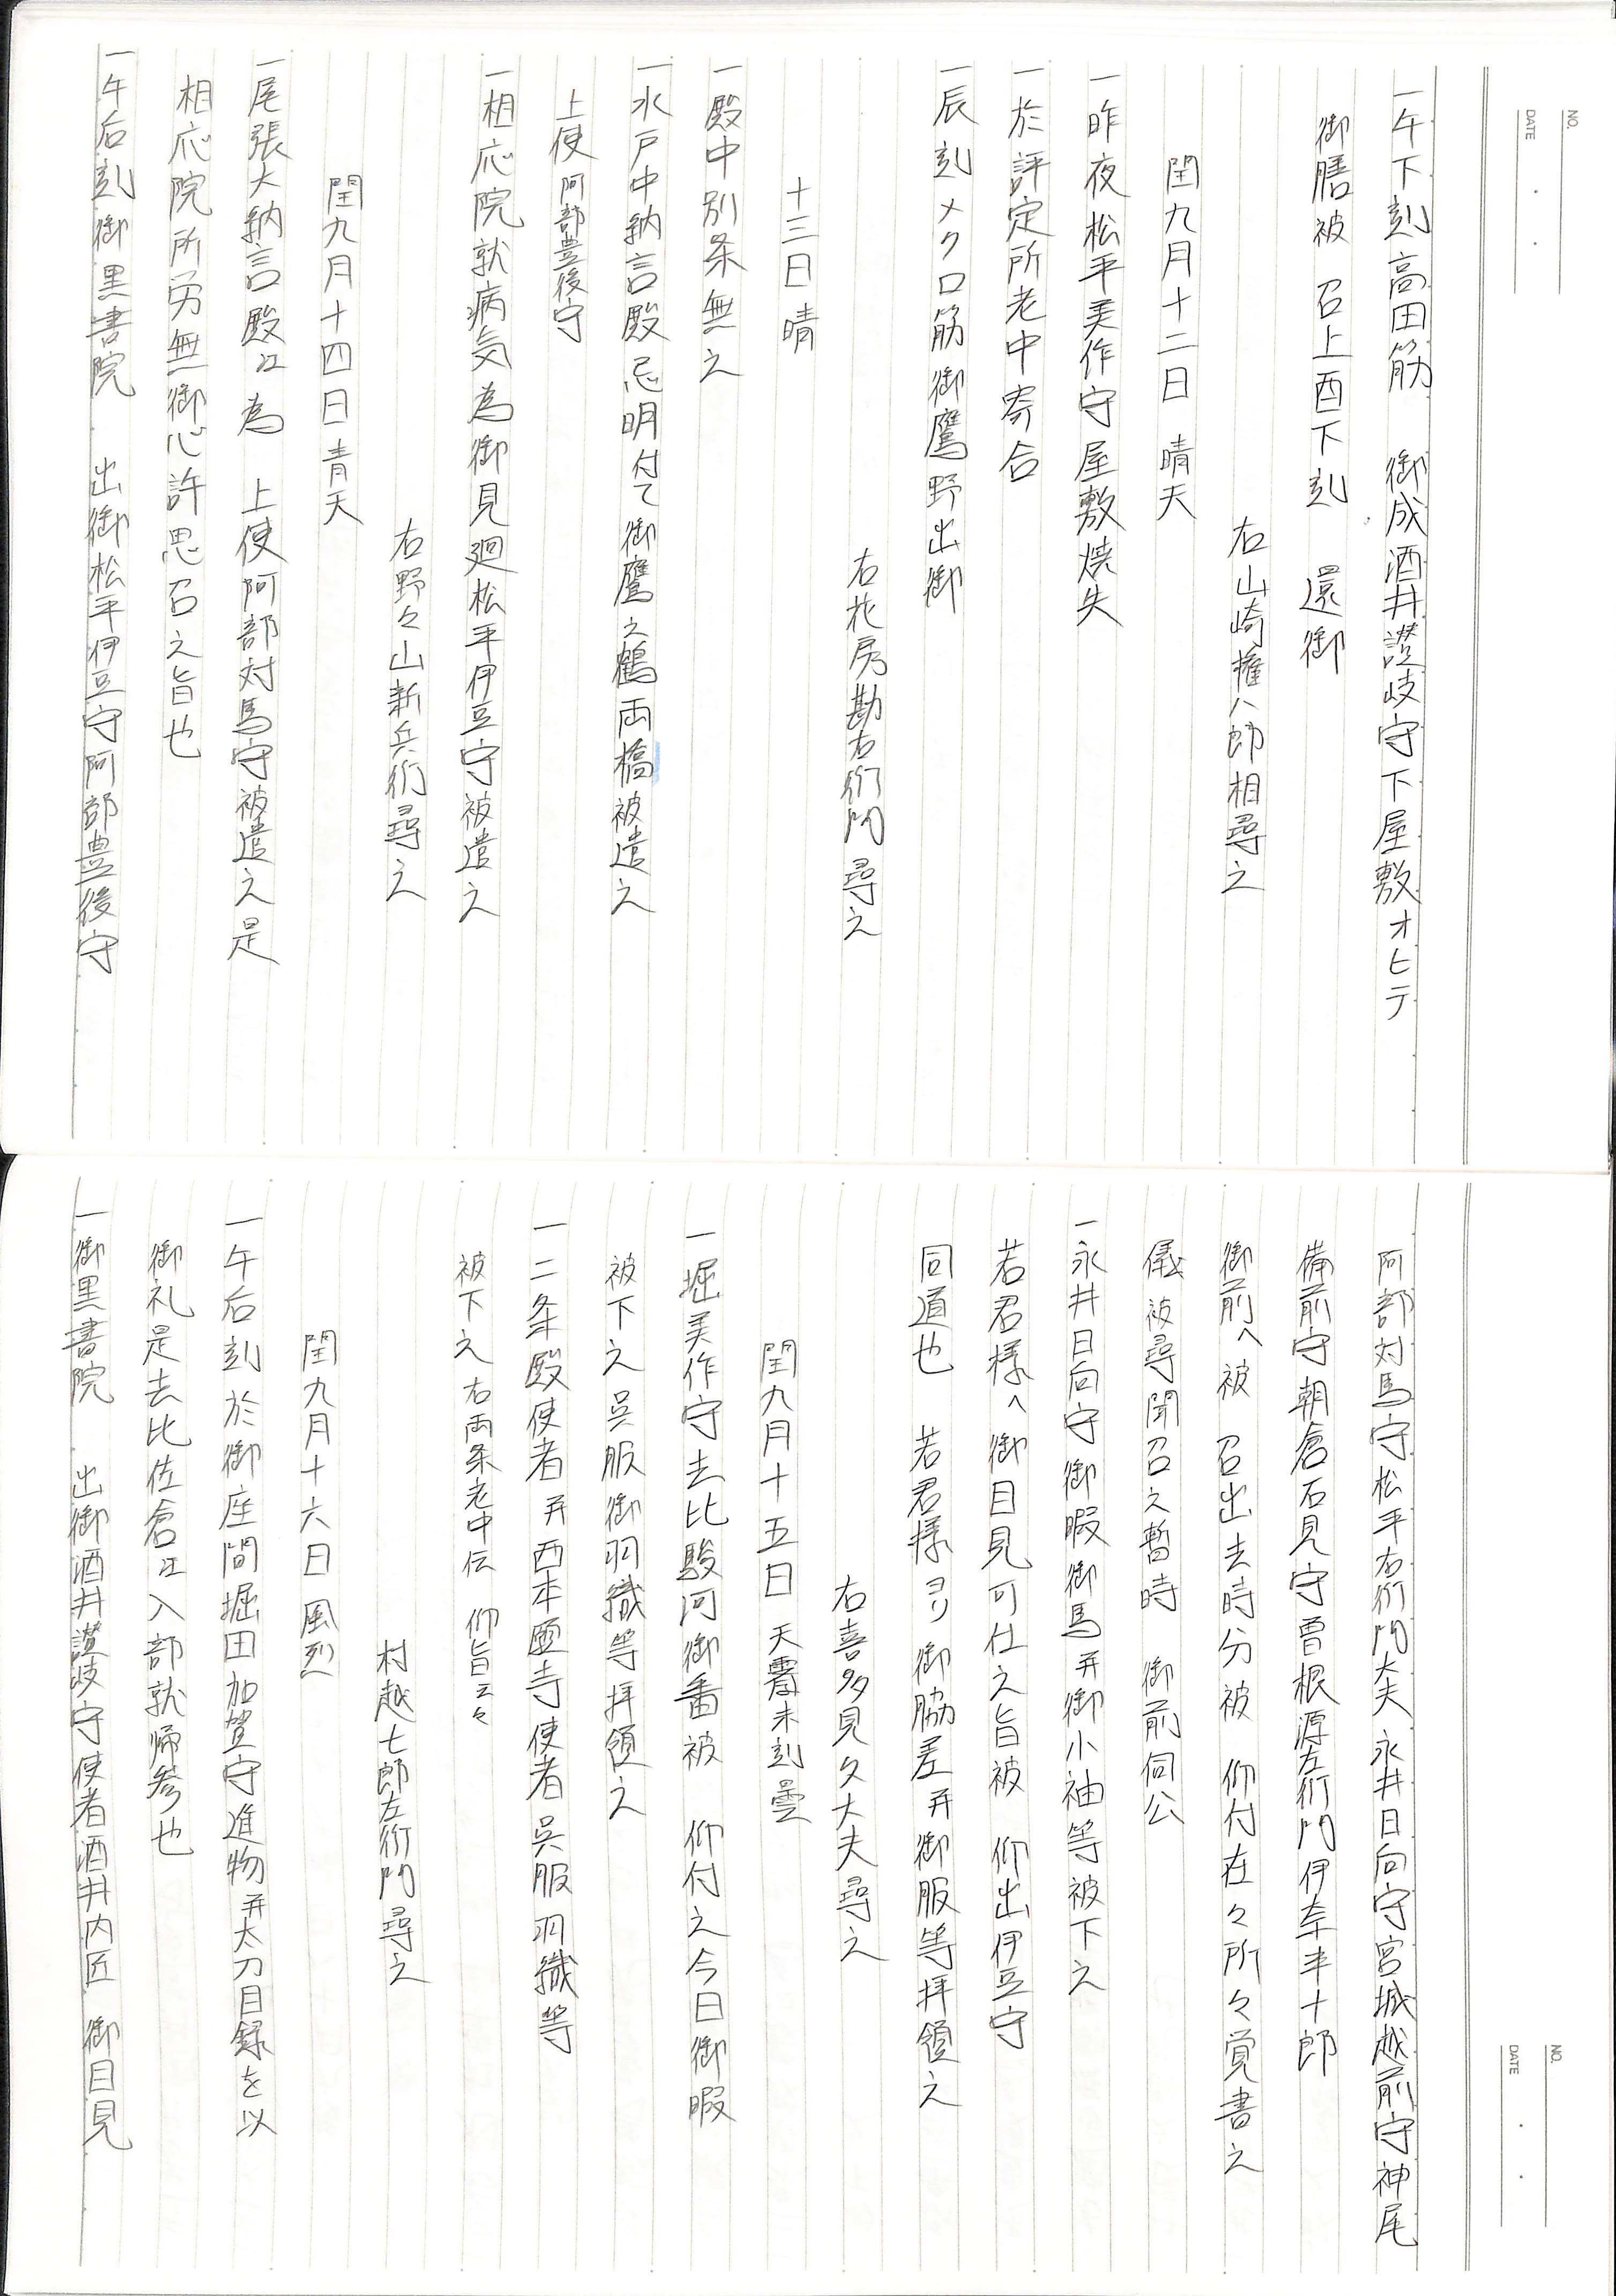 NO.
DATE
一午下刻高田筋　御成酒井讃岐守下屋敷オヒテ
御膳被　召上酉下刻　還御
右山崎権八郎相尋之
閏九月十二日　晴天
一昨夜松平美作守屋敷焼失
一於評定所老中寄合
一辰刻メクロ筋御鷹野出御
右花房勘右衛門尋之
十三日晴
一殿中別条無之
一水戸中納言殿忌明付て御鷹之鶴両橋被遣之
上使阿部豊後守
一相応院就病気為御見廻松平伊豆守被遣之
右野々山新兵衛尋之
閏九月十四日青天
一尾張大納言殿江為　上使阿部対馬守被遣之是
相応院所労無御心許思召之旨也
一午后刻御黒書院　出御松平伊豆守阿部豊後守
NO.
DATE
阿部対馬守松平右衛門大夫永井日向守宮城越前守神尾
備前守朝倉石見守曽根源左衛門伊奈半十郎
御前へ被　召出去時分被　仰付在々所々覚書之
儀被尋聞召之暫時　御前伺公
一永井日向守御暇御馬并御小袖等被下之
若君様へ御目見可仕之旨被　仰出伊豆守
同道也　若君様ヨリ御脇差并御服等拝領之
右喜多見久大夫尋之
閏九月十五日　天霽未刻曇
一堀美作守去比駿河御番被　仰付之今日御暇
被下之呉服御羽織等拝領之
一二条殿使者并西本願寺使者呉服羽織等
被下之右両条老中伝　仰旨云々
村越七郎左衛門尋之
閏九月十六日　風烈
一午后刻於御座間堀田加賀守進物并太刀目録を以
御礼是去比佐倉江入部就帰参也
一御黒書院　出御酒井讃岐守使者酒井内匠　御目見